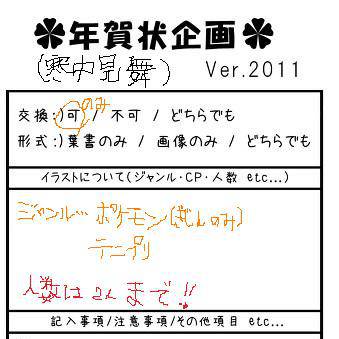 ✤年賀状企画✤
(寒中見舞)
Ver.2011
交換:)可のみ / 不可 / どちらでも
形式:)葉書のみ / 画像のみ / どちらでも
イラストについて(ジャンル・CP・人数 etc...)
ジャンル… ポケモン(ぎんのみ)
テニプリ
人数は2人まで!!
記入事項/注意事項/その他項目 etc...